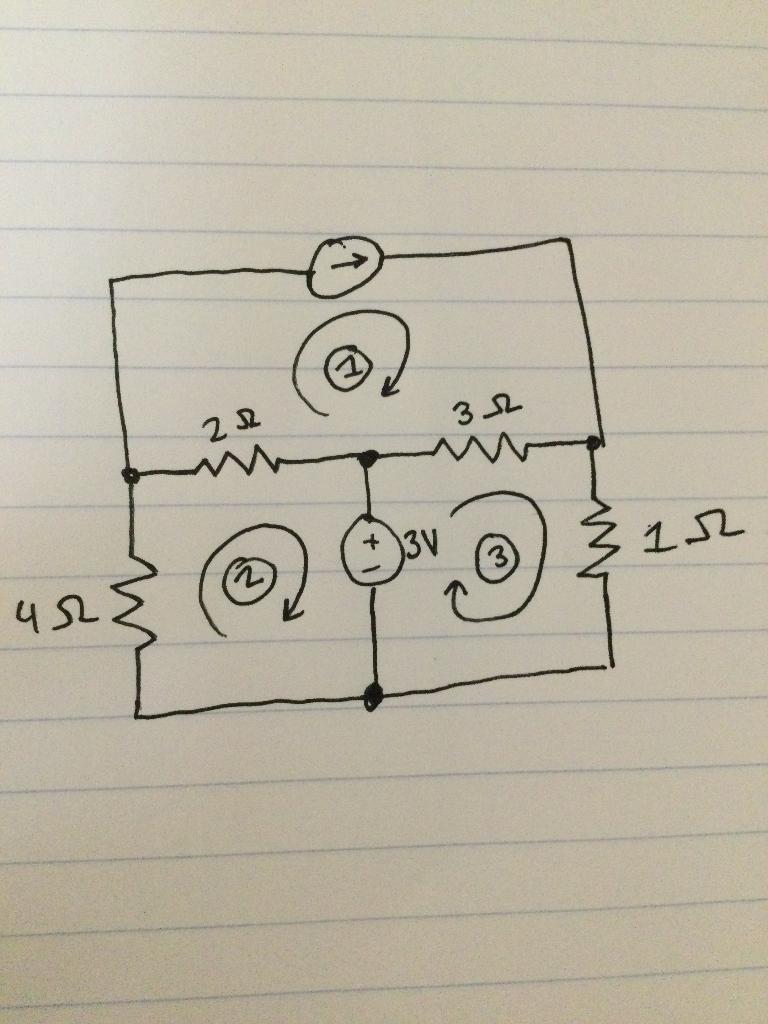 1
2 Ω
3 Ω
+
−
3V
2
3
1 Ω
4 Ω